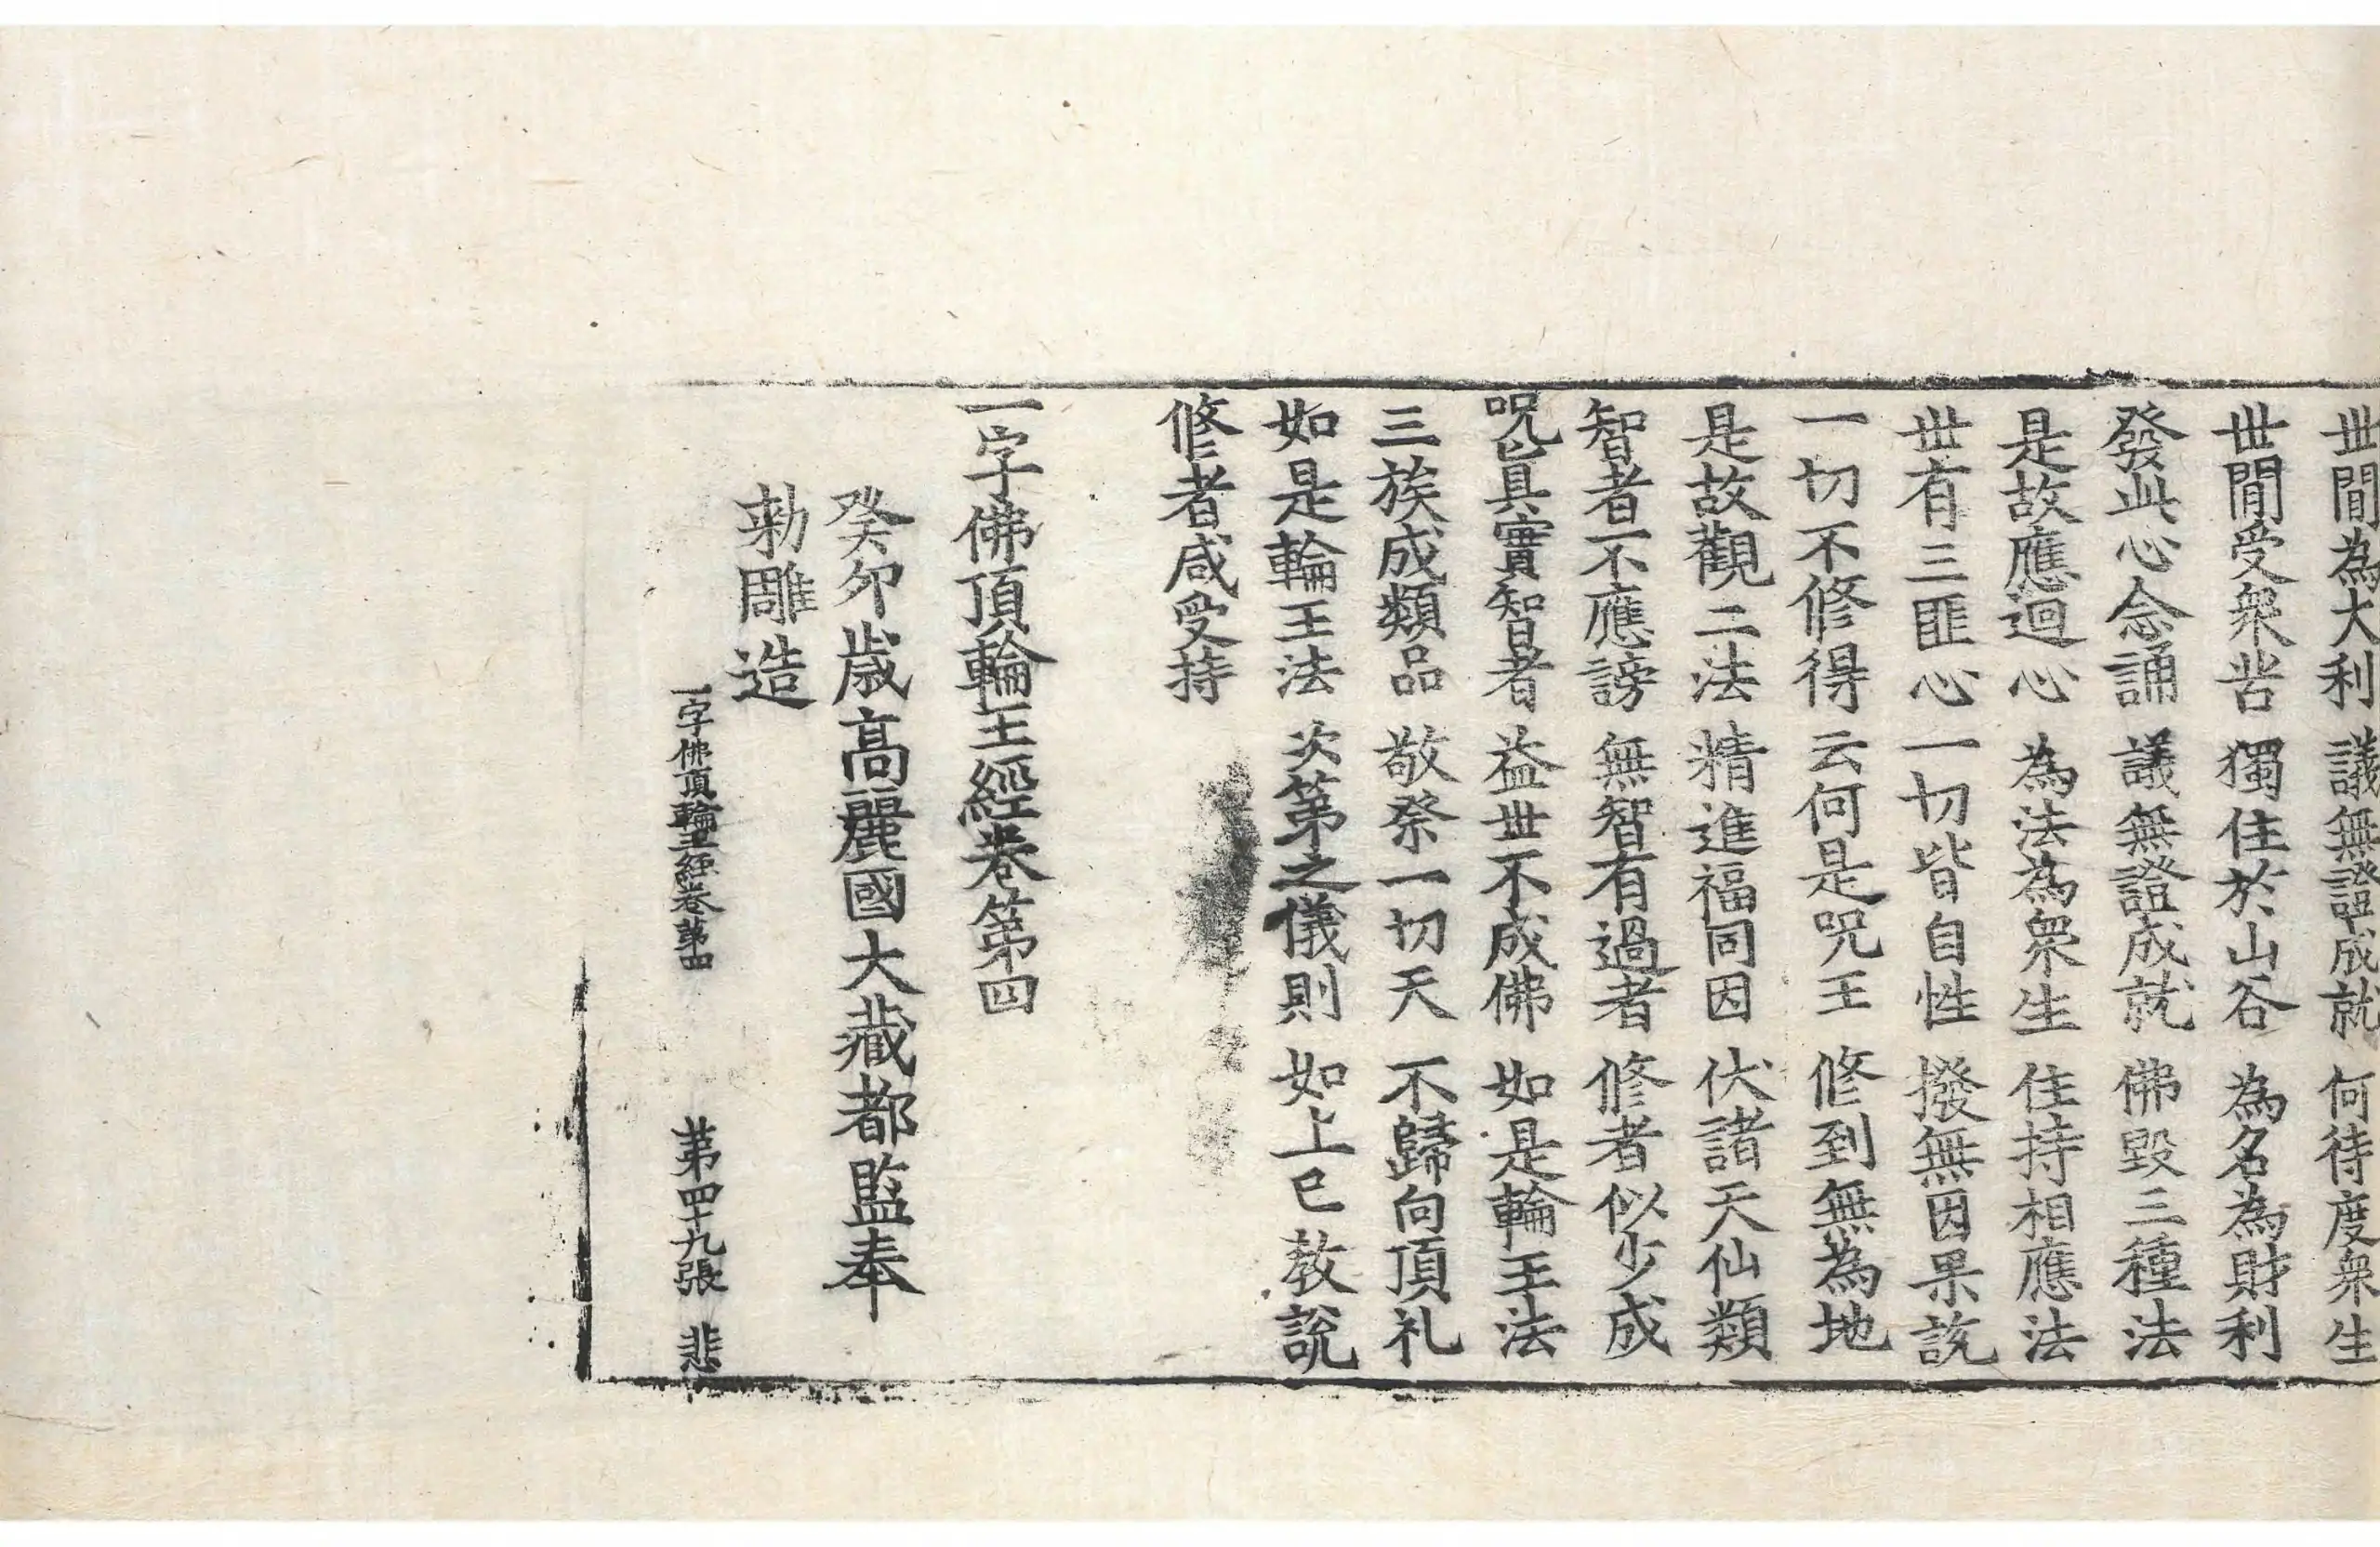 世間為大利 議無證成就 何待度衆生
世間受衆苦 獨住於山谷 為名為財利
發此心念誦 議無證成就 佛毀三種法
是故應迴心 為法為衆生 住持相應法
世有三匪心 一切皆自性 撥無因果說
一切不修得 云何是呪王 修到無為地
是故觀二法 精進福同因 伏諸天仙類
智者不應謗 無智有過者 修者似少成
呪皀具實智者 益世不成佛 如是輪王法
三族成類品 敬祭一切天 不歸向頂礼
如是輪王法 次第之儀則 如上已教說
修者咸受持
一字佛頂輪王經卷第四
癸卯歲高麗國大藏都監奉
勅雕造
一字佛頂輪王經卷第四 第四十九張 悲